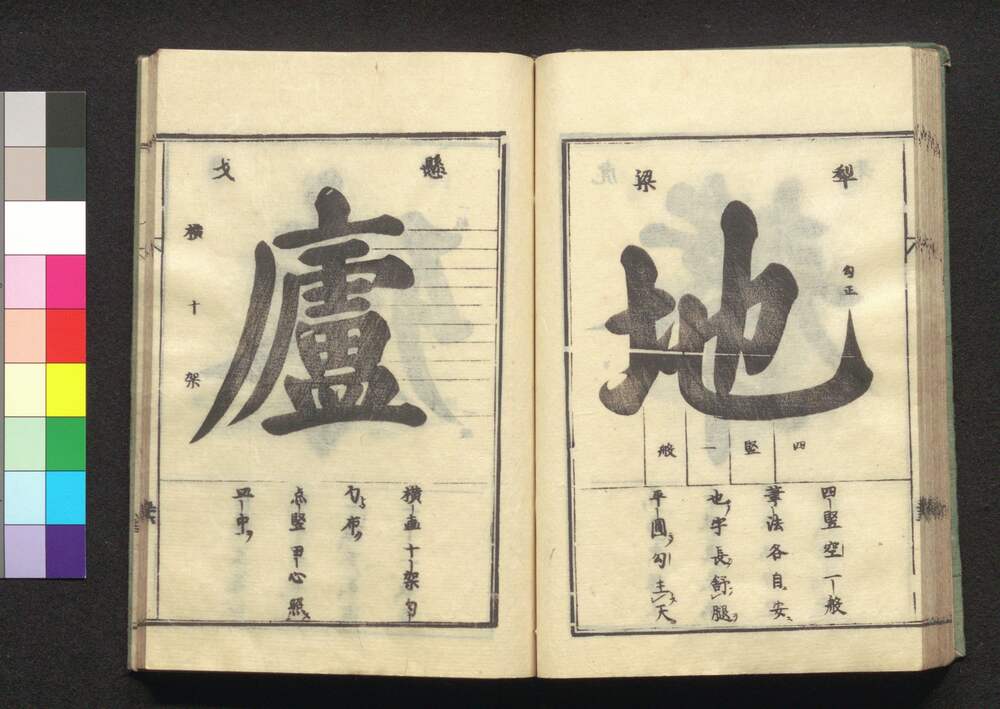 犁 梁
地
勾正
四 竪 一 般
四竪空一般
筆法各自安
也字長舒腿
平圓勾主天
懸 戈
廬
横十架
横画十架匀
匀布
点竪甲心照
皿中